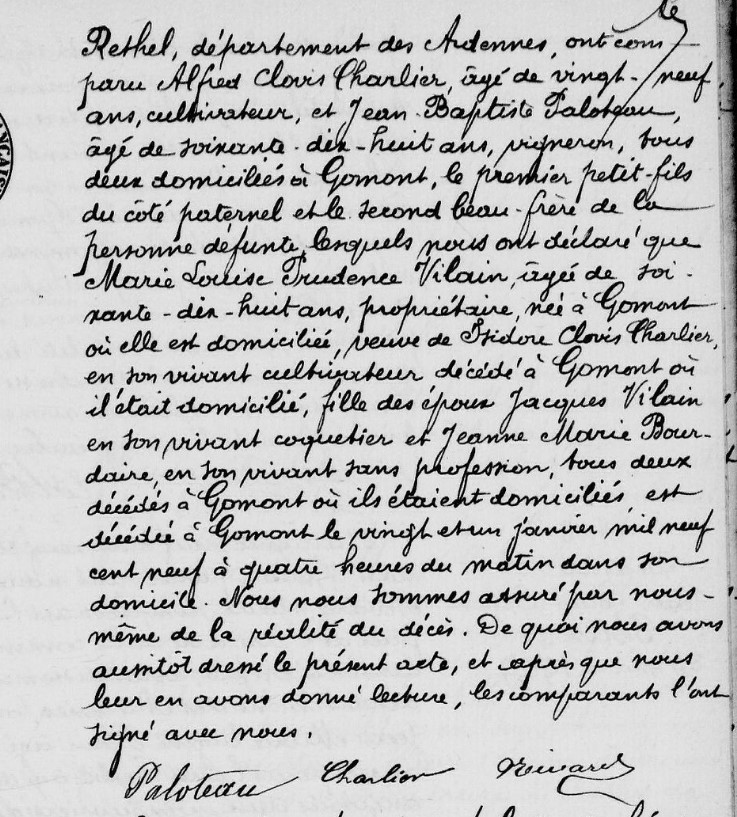 Rethel, département des Ardennes, ont com-
paru Alfred Clovis Charlier, âgé de vingt-neuf
ans, cultivateur, et Jean-Baptiste Paloteau,
âgé de soixante-dix-huit ans, vigneron, tous
deux domiciliés à Gomont, le premier petit-fils
du côté paternel et le second beau-frère de la
personne défunte, lesquels nous ont déclaré que
Marie Louise Prudence Vilain, âgée de soi-
xante-dix-huit ans, propriétaire, née à Gomont
où elle est domiciliée, veuve de Isidore Clovis Charlier,
en son vivant cultivateur décédé à Gomont où
il était domicilié, fille des époux Jacques Vilain
en son vivant coquetier et Jeanne Marie Bour-
daire, en son vivant sans profession, tous deux
décédés à Gomont où ils étaient domiciliés est
décédée à Gomont le vingt et un janvier mil neuf
cent neuf à quatre heures du matin dans son
domicile. Nous nous sommes assuré par nous-
même de la réalité du décès. De quoi nous avons
aussitôt dressé le présent acte, et après que nous
leur en avons donné lecture, les comparants l'ont
signé avec nous.
Paloteau Charlier